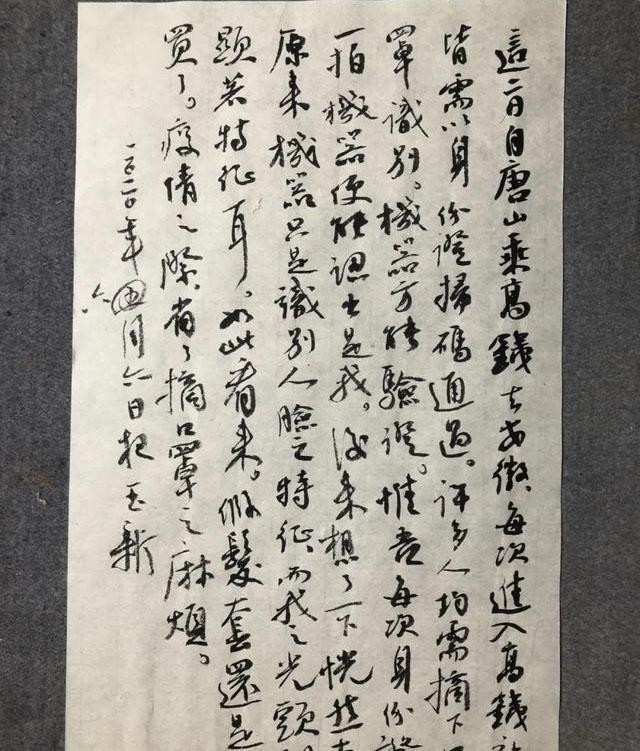 這二日自唐山乘高鐵去安徽每次進入高鐵
皆需以身份證掃碼通過。許多人均需摘下
罩識别。機器方能驗證。惟吾每次身份證
一拍機器便能認出是我。後来想了一下恍然
原来機器只是識别人臉之特征而我之光頭
顕著特征耳。如此看来。假髮套還是
買了。疫情之際省了摘口罩之麻煩。
二〇二〇年四月六日
六